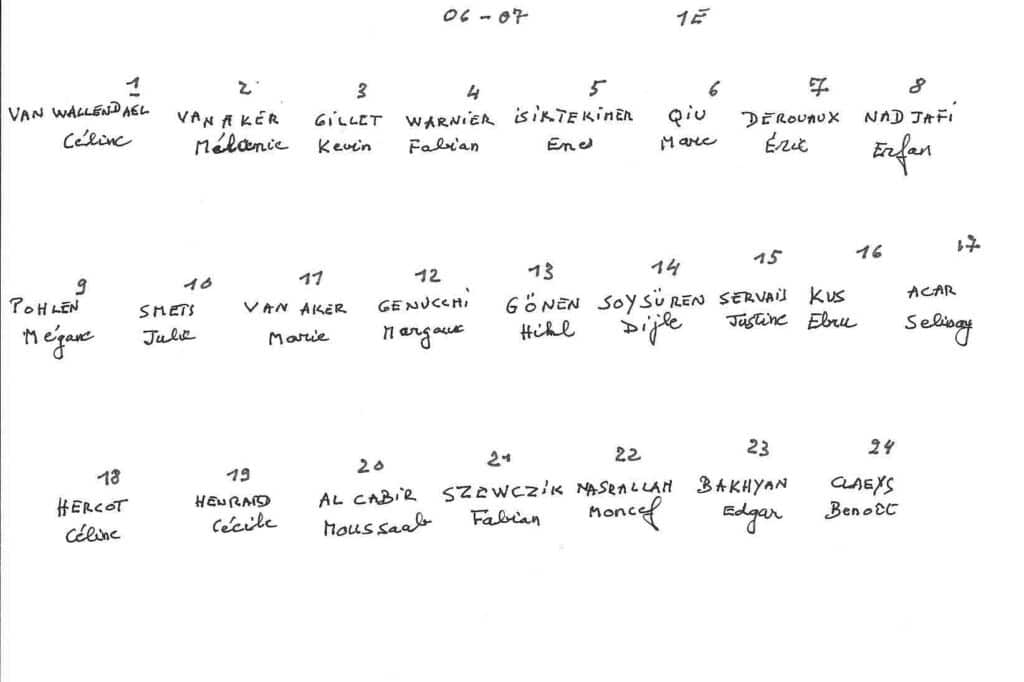 06-07 1E
1 2 3 4 5 6 7 8
VAN WALLENDAEL VAN AKER GILLET WARNIER ISIKTEKINER QIU DEROUAUX NADJAFI
Céline Mélanie Kevin Fabian Enes Marc Éric Erfan
9 10 11 12 13 14 15 16 17
POHLEN SMETS VAN AKER GENUCCHI GÖNEN SOYSÜREN SERVAIS KUS ACAR
Mégane Julie Marie Margaux Dijle Justine Ebru
18 19 20 21 22 23 24
HERCOT HENRARD AL CABIR SZEWCZIK NASRALLAH BAKHYAN CLAEYS
Céline Cécile Moussaab Fabian Moncef Edgar Benoît